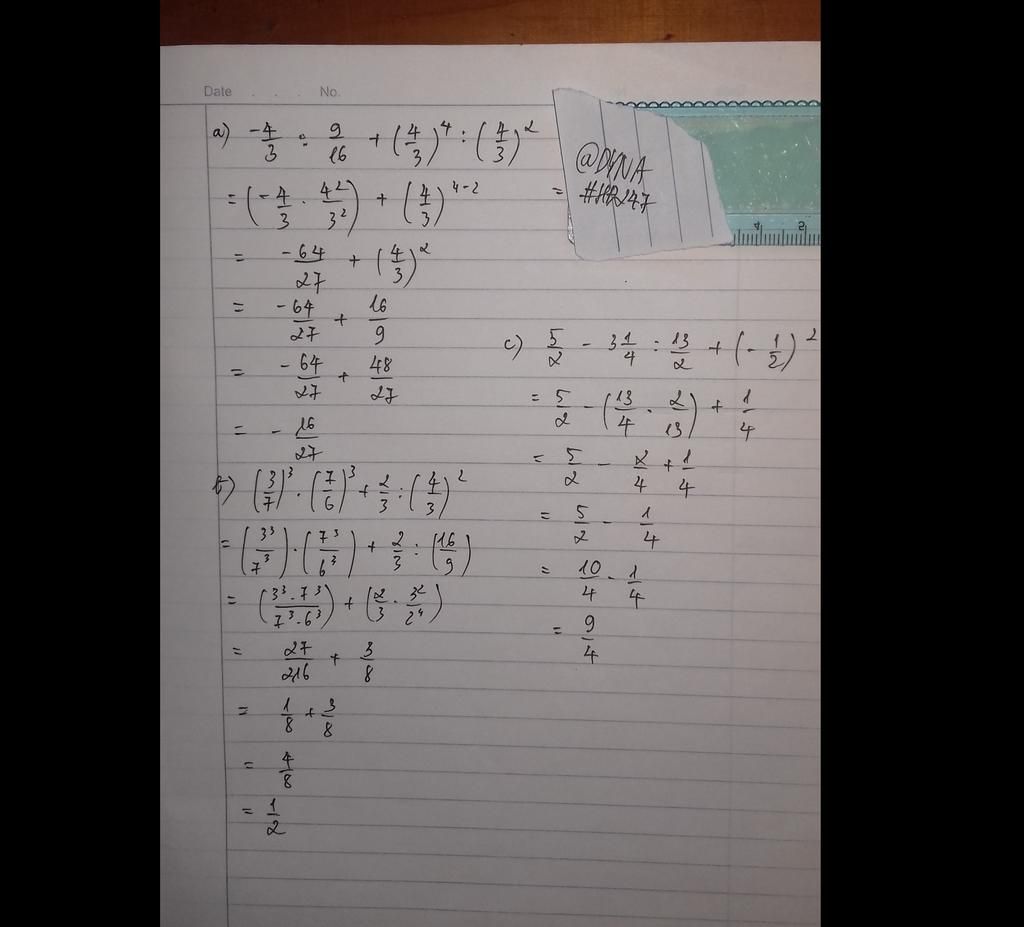 Date . . . No.
a) -4/3 : 9/16 + (4/3)^4 : (4/3)^2
= (-4/3 . 4^2/3^2) + (4/3)^{4-2}
= -64/27 + (4/3)^2
= -64/27 + 16/9
= -64/27 + 48/27
= - 16/27
b) (3/7)^3 . (7/6)^3 + 2/3 : (4/3)^2
= (3^3/7^3) . (7^3/6^3) + 2/3 : (16/9)
= (3^3 . 7^3/7^3 . 6^3) + (2/3 . 3^2/2^4)
= 27/216 + 3/8
= 1/8 + 3/8
= 4/8
= 1/2
=
@DYNA
#HR247
4 5
c) 5/2 - 3 1/4 : 13/2 + (-1/2)^2
= 5/2 - (13/4 . 2/13) + 1/4
= 5/2 - 2/4 + 1/4
= 5/2 - 1/4
= 10/4 - 1/4
= 9/4